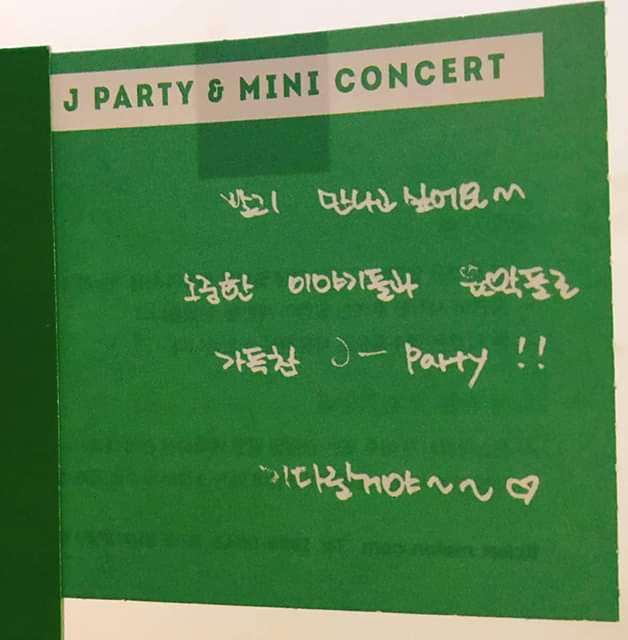 J PARTY & MINI CONCERT
빨리 만나고싶어요^^
소중한 이야기들과 음악들로
가득찬 J - Party !!
기다릴거야~~ ♡